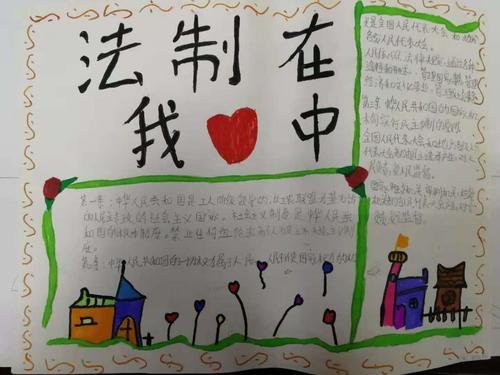 法制在
我中
是全国人民代表大会和地方
各级人民代表大会。
人民依照法律规定，通过各种
途径和形式，管理国家事务，管理
经济和文化事业，管理社会事务
第三条 中华人民共和国的国家机
构实行民主集中制的原则
全国人民代表大会和地方各级人
民代表大会都由民主选举产生，对人
民负责，受人民监督。
国家行政机关、审判机关、检
监督。
第一条：中华人民共和国是工人阶级领导的，以工农联盟为基础
的人民民主专政的社会主义国家。社会主义制度是中华人民共
和国的根本制度。禁止任何组织或者个人破坏社会主义制
度。
第二条：中华人民共和国的一切权力属于人民。人民行使国家权力的机